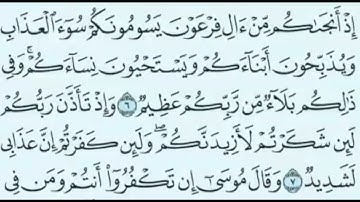 إِذْ أَنجَىٰكُم مِّنْ ءَالِ فِرْعَوْنَ يَسُومُونَكُمْ سُوٓءَ ٱلْعَذَابِ
وَيُذَبِّحُونَ أَبْنَآءَكُمْ وَيَسْتَحْيُونَ نِسَآءَكُمْ ۚ وَفِى
ذَٰلِكُم بَلَآءٌ مِّن رَّبِّكُمْ عَظِيمٌ ٦ وَإِذْ تَأَذَّنَ رَبُّكُمْ
لَئِن شَكَرْتُمْ لَأَزِيدَنَّكُمْ ۖ وَلَئِن كَفَرْتُمْ إِنَّ عَذَابِى
لَشَدِيدٌ ٧ وَقَالَ مُوسَىٰٓ إِن تَكْفُرُوٓا۟ أَنتُمْ وَمَن فِى